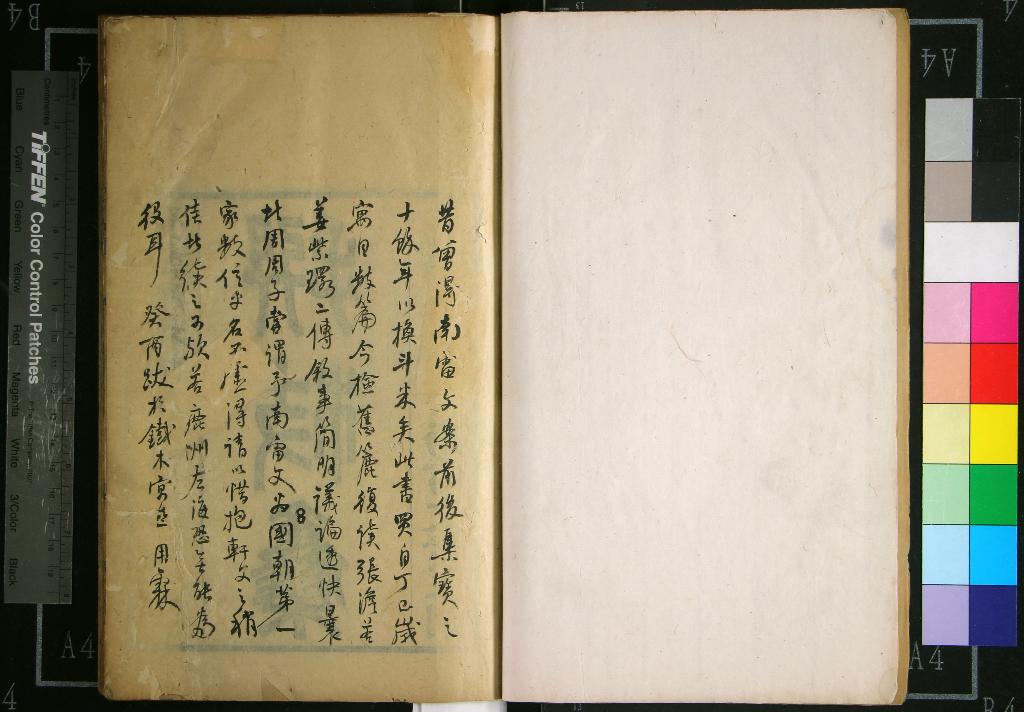 昔曾得南雷文案前後集寶之
十餘年以換斗米矣此書買自丁巳歲
寓目數篇今檢舊簏復讀張滄若
姜紫環二傳敘事簡明議論透快曩
時周周子嘗謂予南雷文為國朝第一
家數信乎名不虛得讀以惜抱軒文之稍
佳者讀之可欤若鹿洲左海恐無能為
役耳 癸酉跋於鐵木
8
TIFFEN Color Control Patches
Centimetres
Inches
Blue
Cyan
Green
Yellow
Red
Magenta
White
3/Color
Black
A4
A4
A4
B4